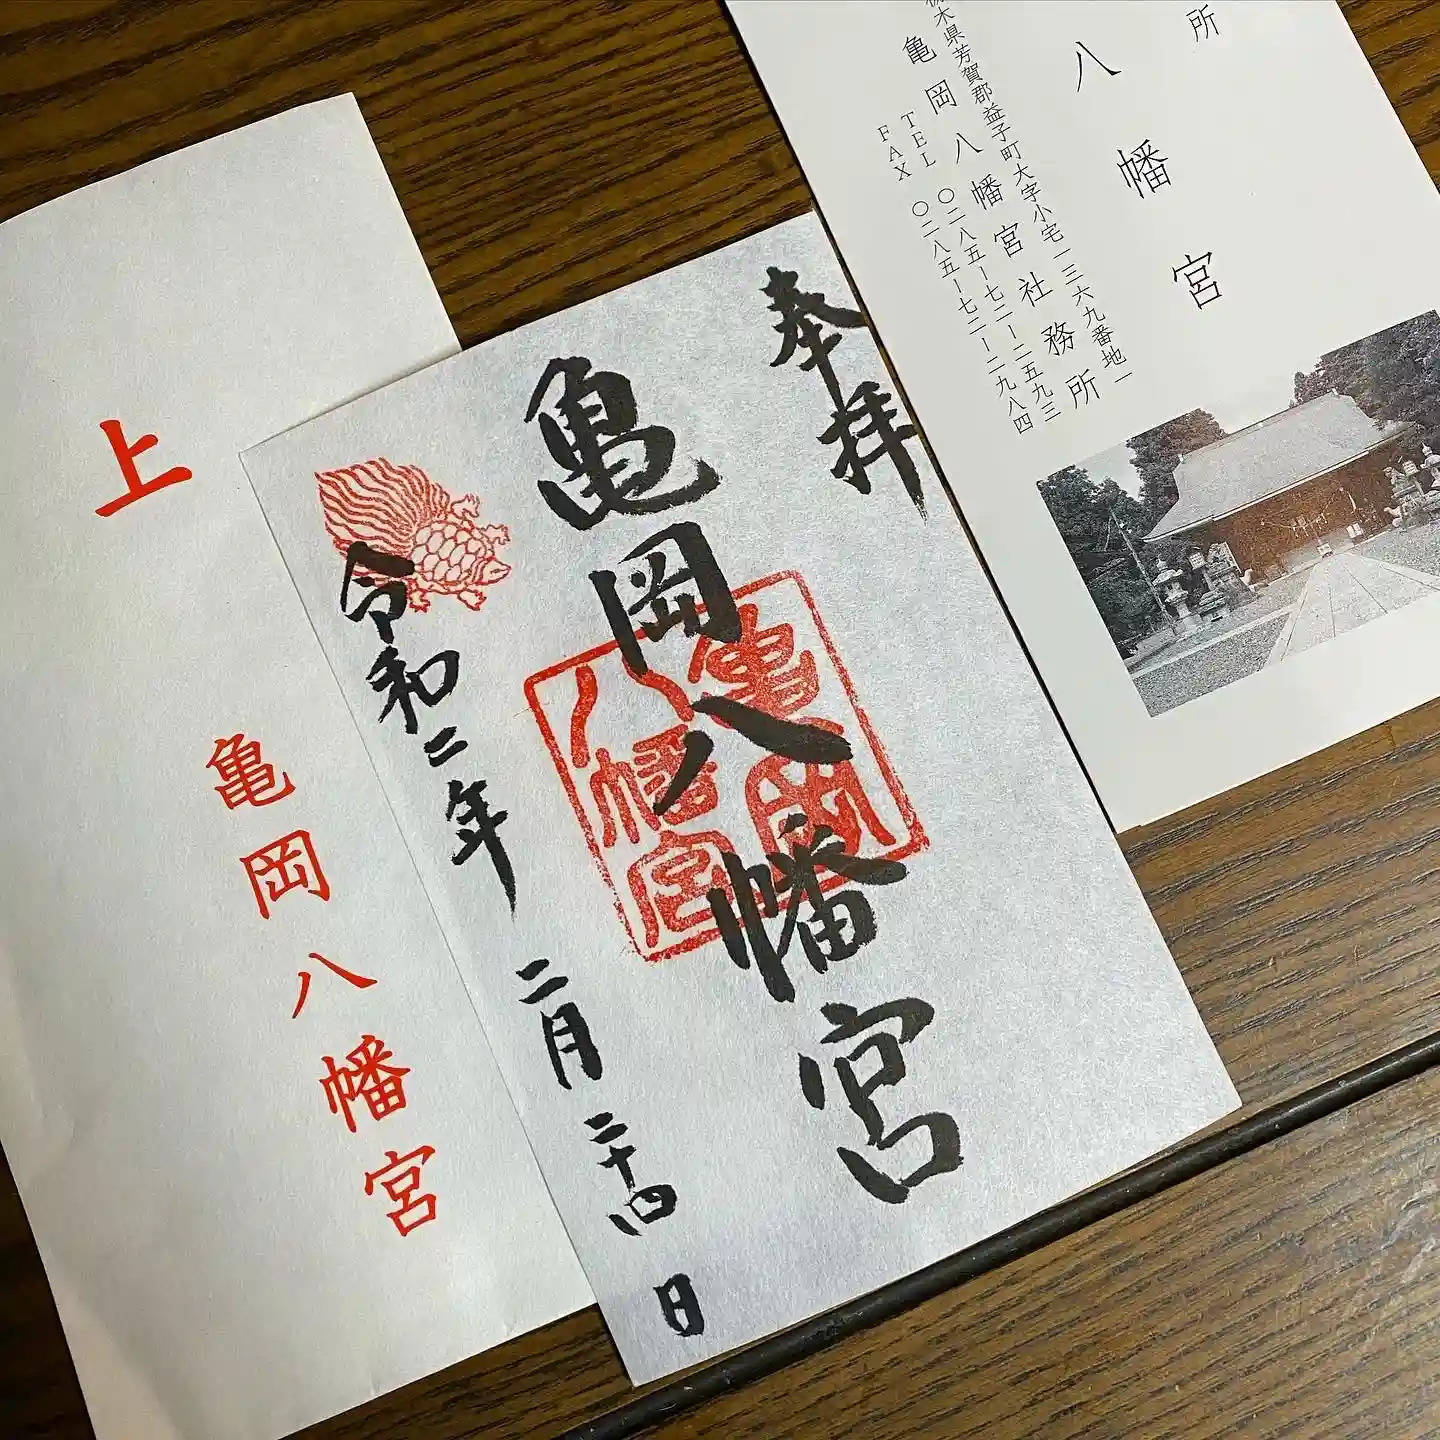 上
亀岡八幡宮
奉拝
亀岡八幡宮
亀岡
八幡宮
令和二年 二月 二十四日
所
八幡宮
栃木県芳賀郡益子町大字小宅一三六九番地一
亀岡八幡宮社務所
TEL 〇二八五ー七二ー二五九三
FAX 〇二八五ー七二ー二九八四